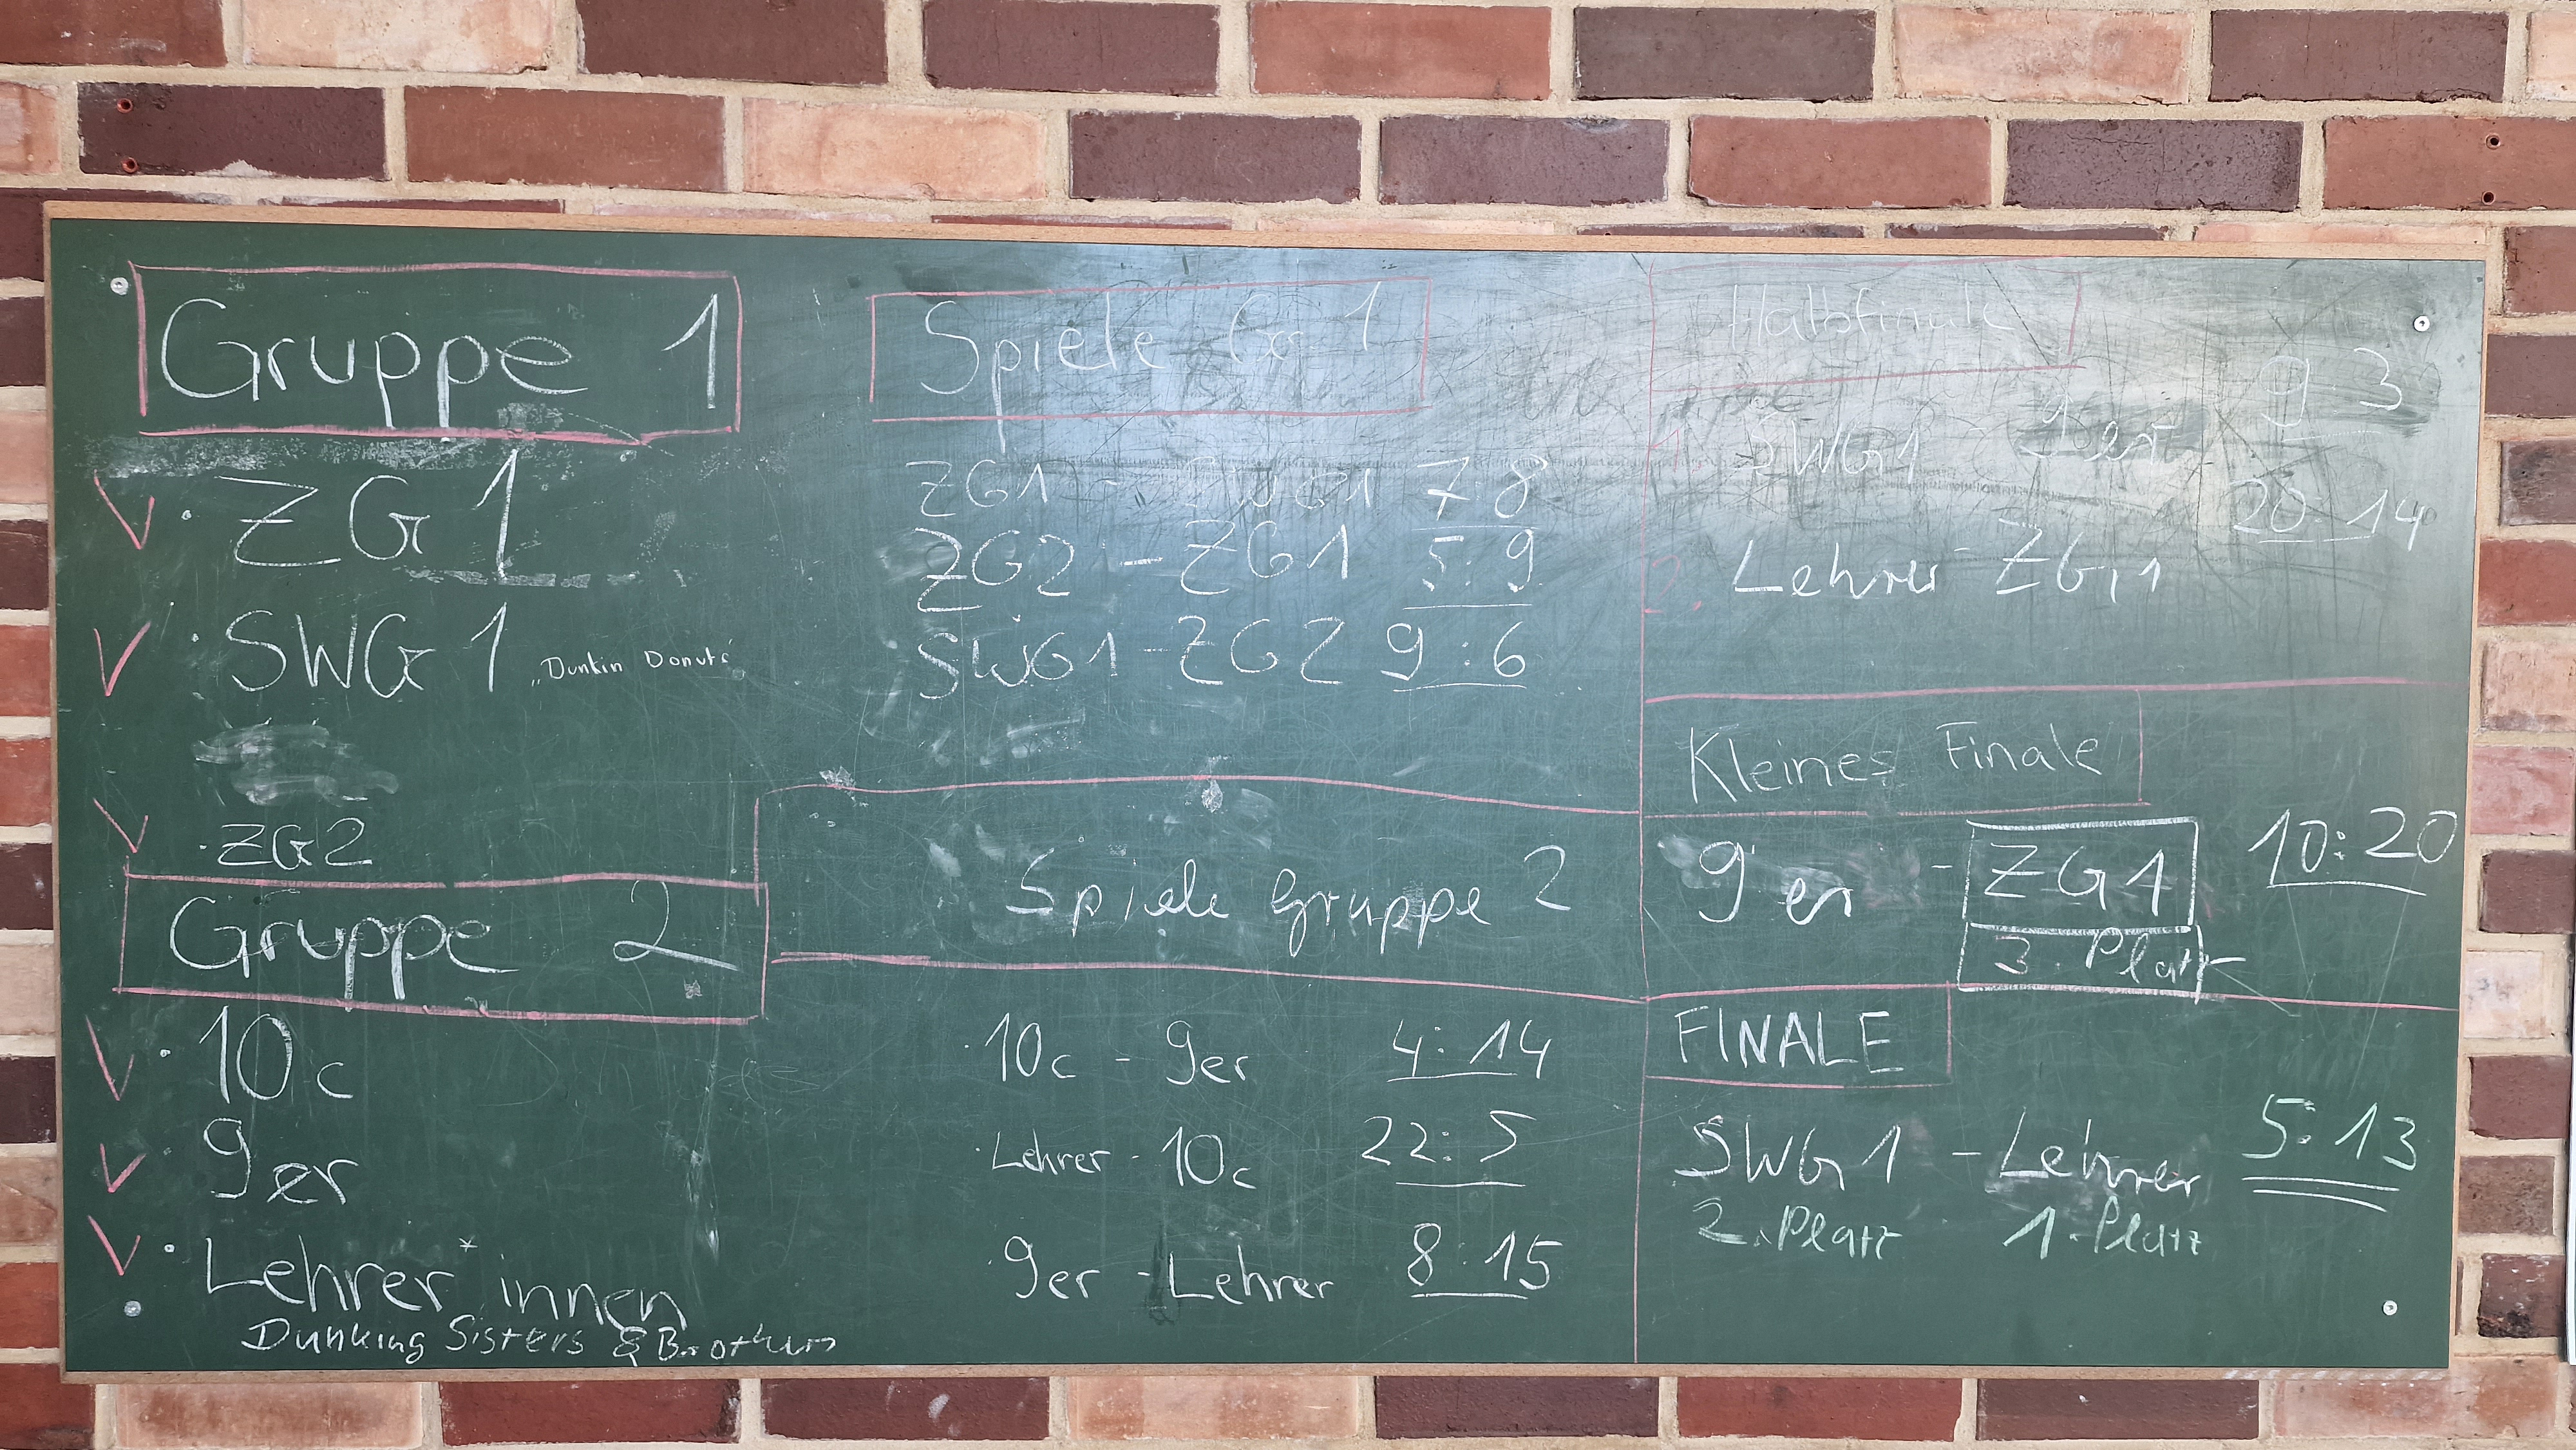 Gruppe 1
· ZG1
· SWG 1 „Dunkin Donuts“
· ZG2
Gruppe 2
· 10c
9er
· Lehrer*innen
Dunking Sisters & Brothers
Spiele Gr. 1
ZG1 - SWG1 7:8
ZG2 - ZG1 5:9
SWG1 - ZG2 9:6
Spiele Gruppe 2
· 10c - 9er 4:14
· Lehrer - 10c 22:5
· 9er - Lehrer 8:15
Halbfinale
1. SWG1 - 9er 9:3
2. Lehrer - ZG1 20:14
Kleines Finale
9er - ZG1 10:20
3. Platz
FINALE
SWG1 - Lehrer 5:13
2. Platz 1. Platz